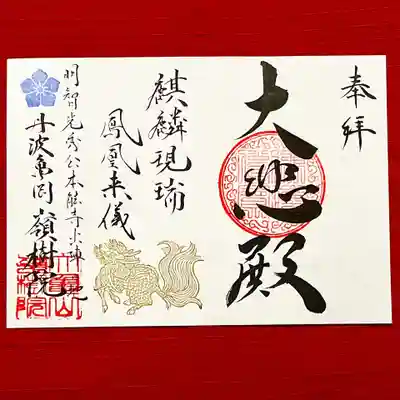 奉拝
大悲殿
麒麟現瑞
鳳凰来儀
明智光秀公本能寺出陣地
丹波亀岡 嶺樹院